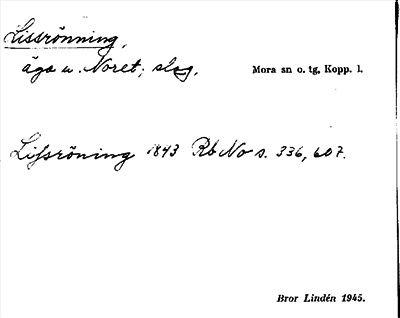 Lissrönning,
äga u. Noret; slog. Mora sn o. tg, Kopp. l.
Lissröning 1843 Rb No s. 336, 607.
Bror Lindén 1945.